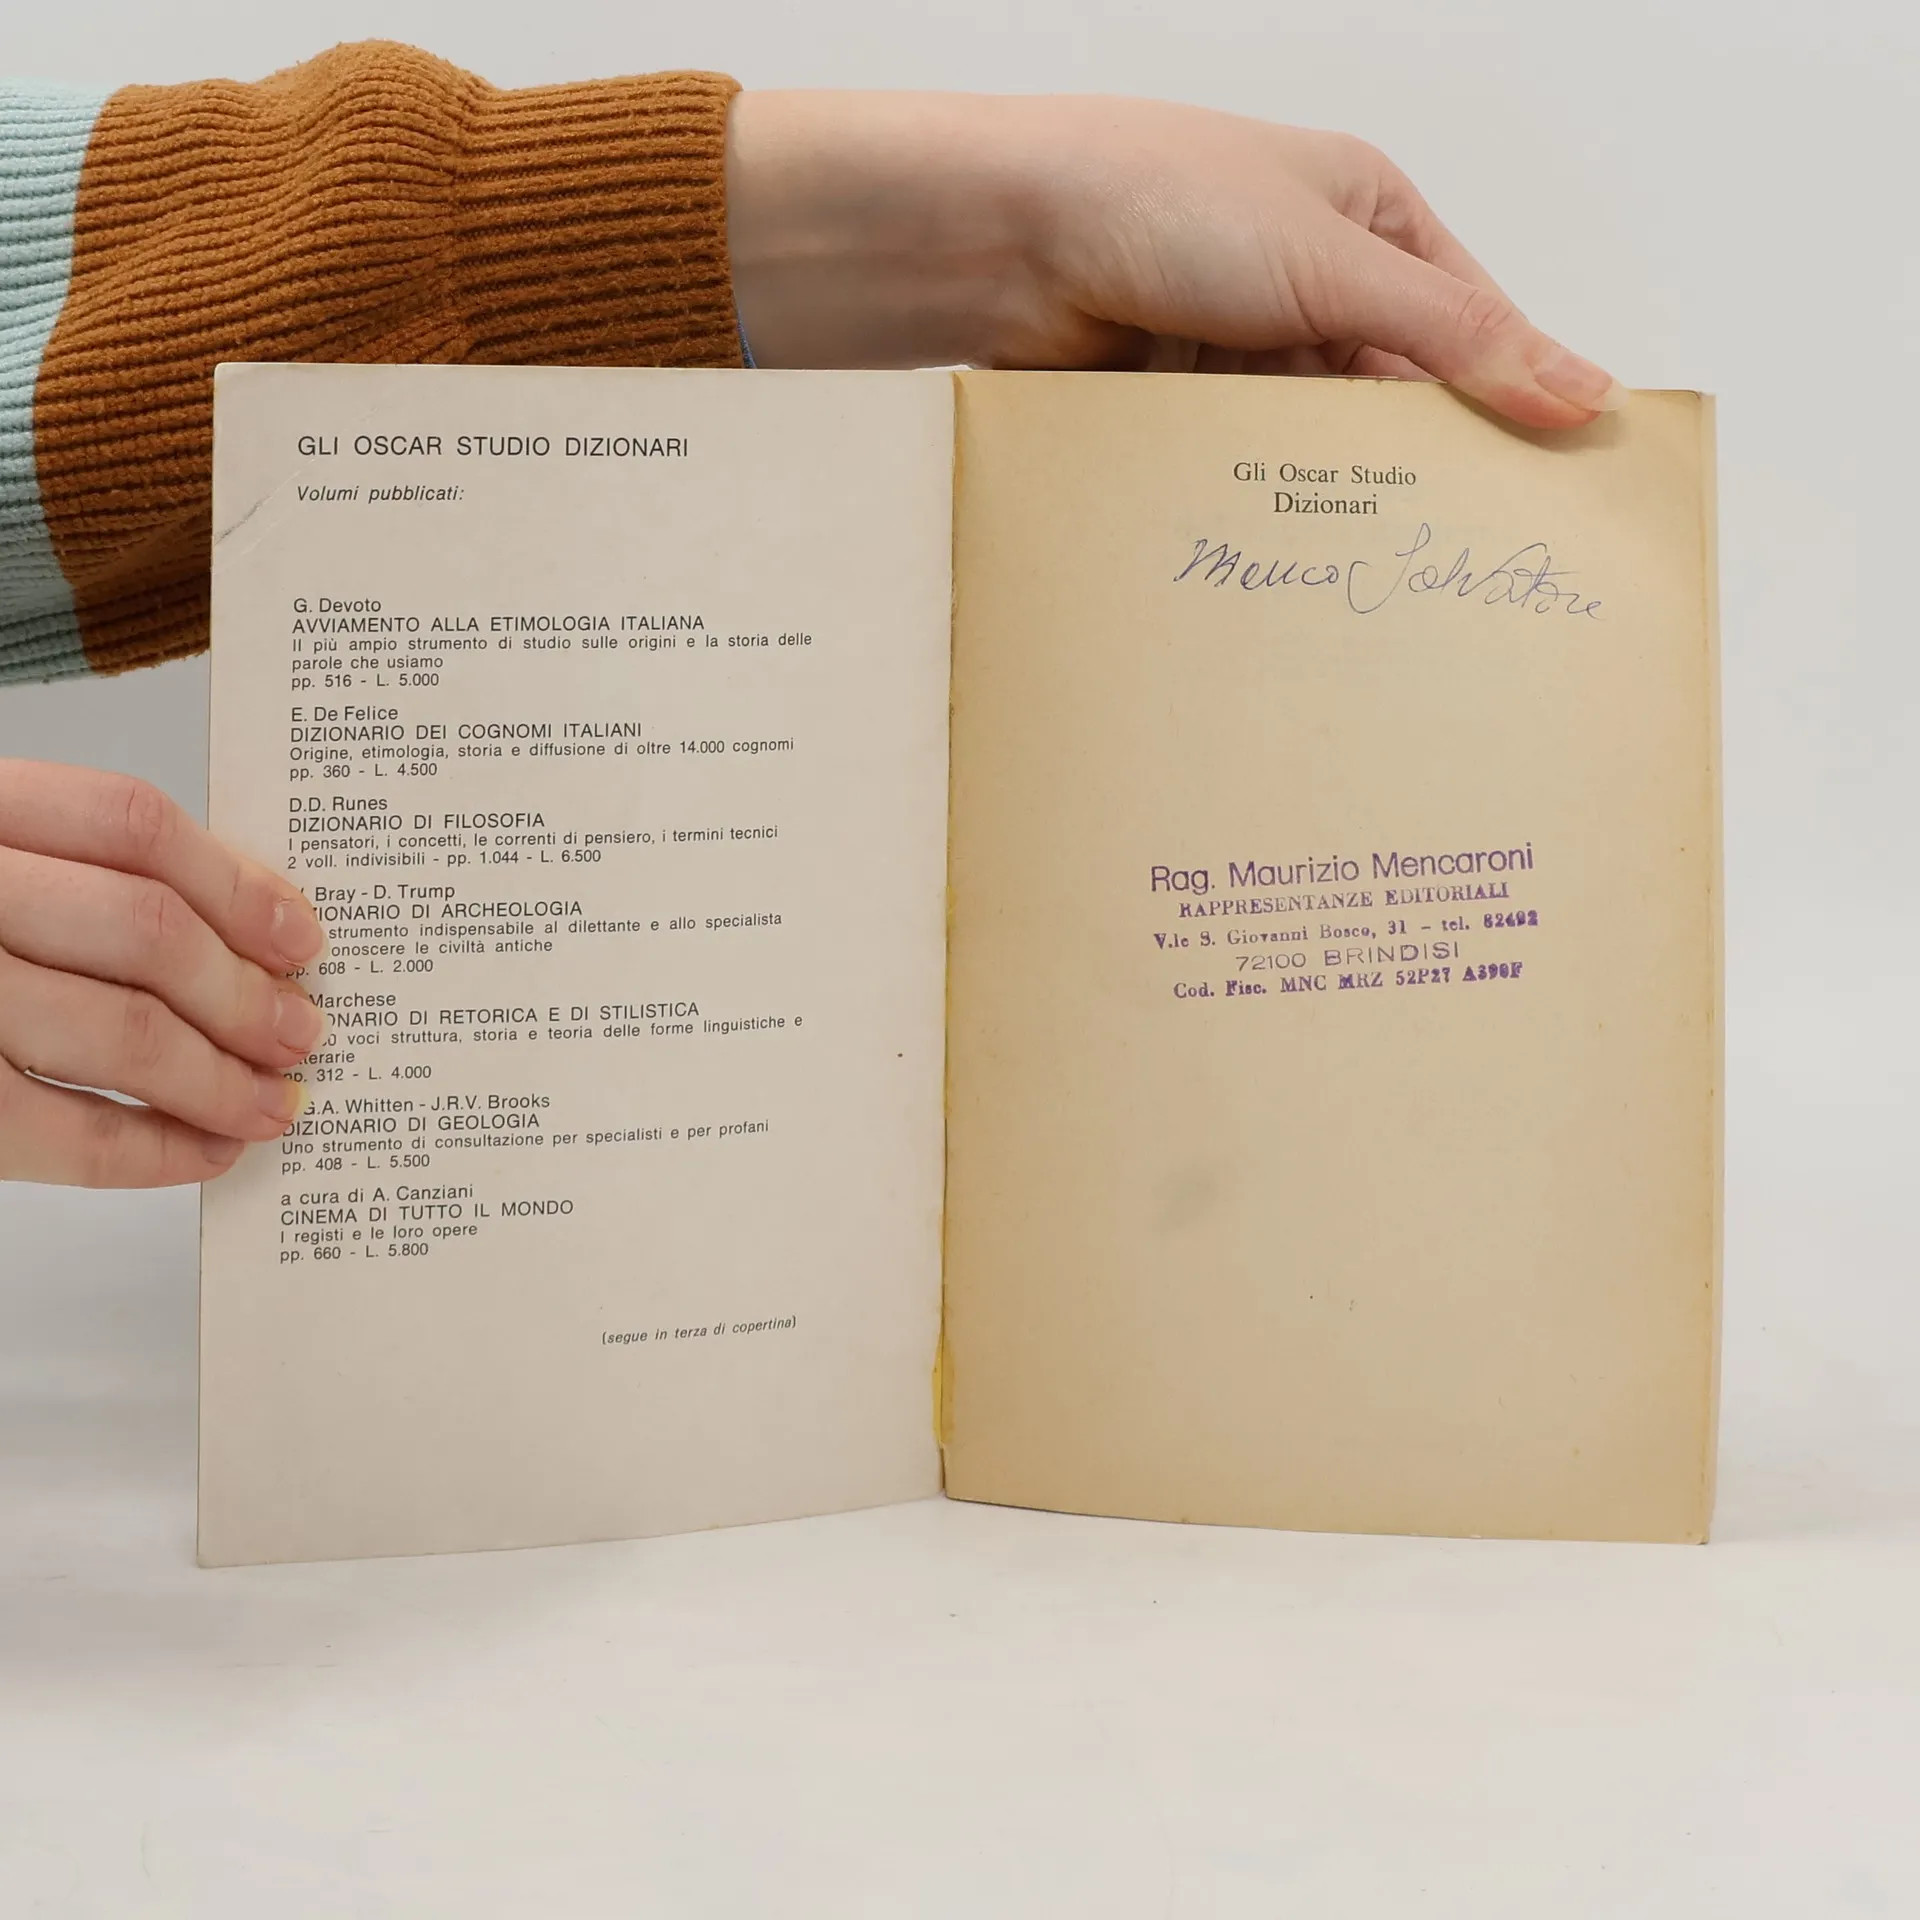 GLI OSCAR STUDIO DIZIONARI
Volumi pubblicati:
G. Devoto
AVVIAMENTO ALLA ETIMOLOGIA ITALIANA
Il più ampio strumento di studio sulle origini e la storia delle
parole che usiamo
pp. 516 - L. 5.000
E. De Felice
DIZIONARIO DEI COGNOMI ITALIANI
Origine, etimologia, storia e diffusione di oltre 14.000 cognomi
pp. 360 - L. 4.500
D.D. Runes
DIZIONARIO DI FILOSOFIA
I pensatori, i concetti, le correnti di pensiero, i termini tecnici
2 voll. indivisibili - pp. 1.044 - L. 6.500
Bray - D. Trump
ZIONARIO DI ARCHEOLOGIA
strumento indispensabile al dilettante e allo specialista
onoscere le civiltà antiche
pp. 608 - L. 2.000
Marchese
ONARIO DI RETORICA E DI STILISTICA
voci struttura, storia e teoria delle forme linguistiche e
tterarie
pp. 312 - L. 4.000
G.A. Whitten - J.R.V. Brooks
DIZIONARIO DI GEOLOGIA
Uno strumento di consultazione per specialisti e per profani
pp. 408 - L. 5.500
a cura di A. Canziani
CINEMA DI TUTTO IL MONDO
I registi e le loro opere
pp. 660 - L. 5.800
(segue in terza di copertina)
Gli Oscar Studio
Dizionari
Salvatore
Rag. Maurizio Mencaroni
RAPPRESENTANZE EDITORIALI
V.le S. Giovanni Bosco, 31 - tel. 82492
72100 BRINDISI
Cod. Fisc. MNC MRZ 52P27 A390F